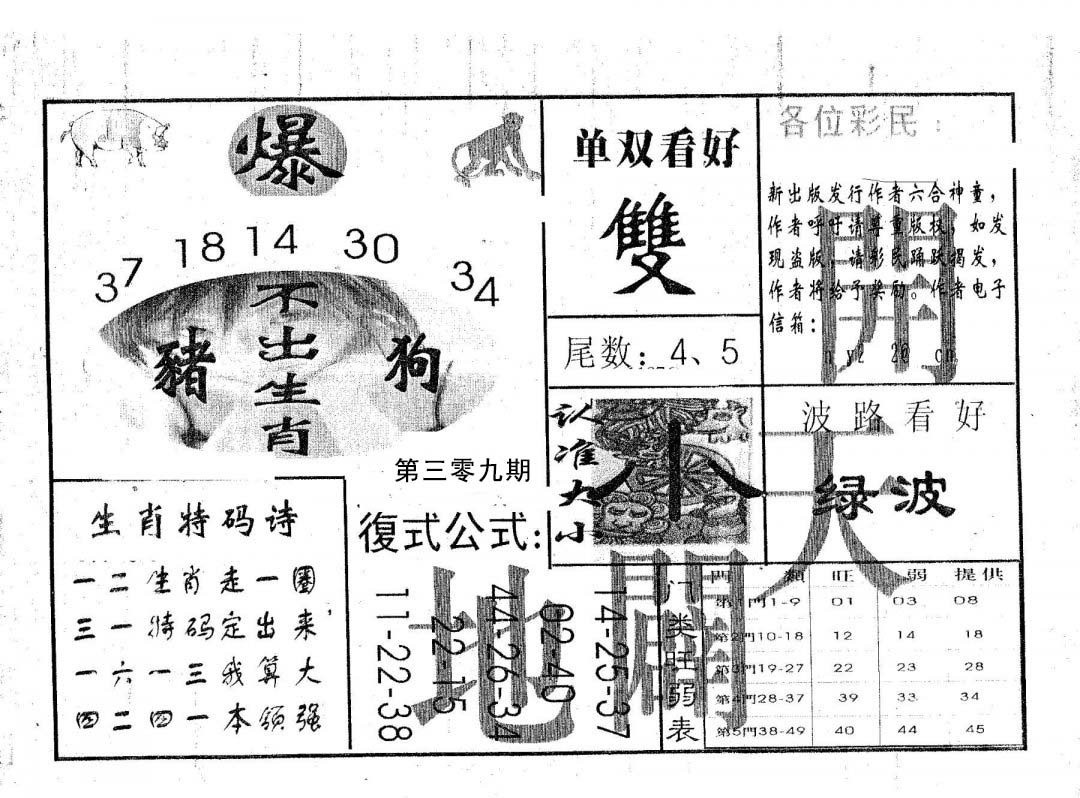 爆
37 18 14 30 34
不出生肖
豬
狗
第三零九期
单双看好
雙
尾数：4、5
各位彩民：
新出版发行作者六合神童，
作者呼吁请尊重版权，如发
现盗版，请彩民踊跃揭发，
作者将给予奖励。作者电子
信箱：
認准大小
小
波路看好
绿波
開天
闢地
生肖特码诗
一二生肖走一圈
三一特码定出来，
一六一三我算大
四二四一本领强
復式公式：
14-25-37
02-40
44-26-34
22-15
11-22-38
门类旺弱表
門 類 旺 弱 提供
第1門1-9 01 03 08
第2門10-18 12 14 18
第3門19-27 22 23 28
第4門28-37 39 33 34
第5門38-49 40 44 45